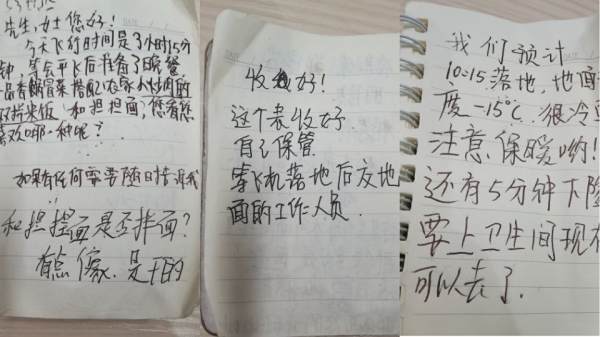 先生,女士您好!
今天飞行时间是3小时15分
钟,等会平飞后准备了晚餐
一品香锅冒菜搭配农家小炒肉的
双拼米饭 和担担面,您看您
喜欢哪一种呢?
如果有任何需要随时告诉我
和担担面是否拌面?
有点像.是干的
收好!
这个表收好
自己保管
等飞机落地后交地
面的工作人员.
我们预计
10:15落地,地面
度-15℃ 很冷
注意保暖哟!
还有5分钟下降
要上卫生间现在
可以去了.